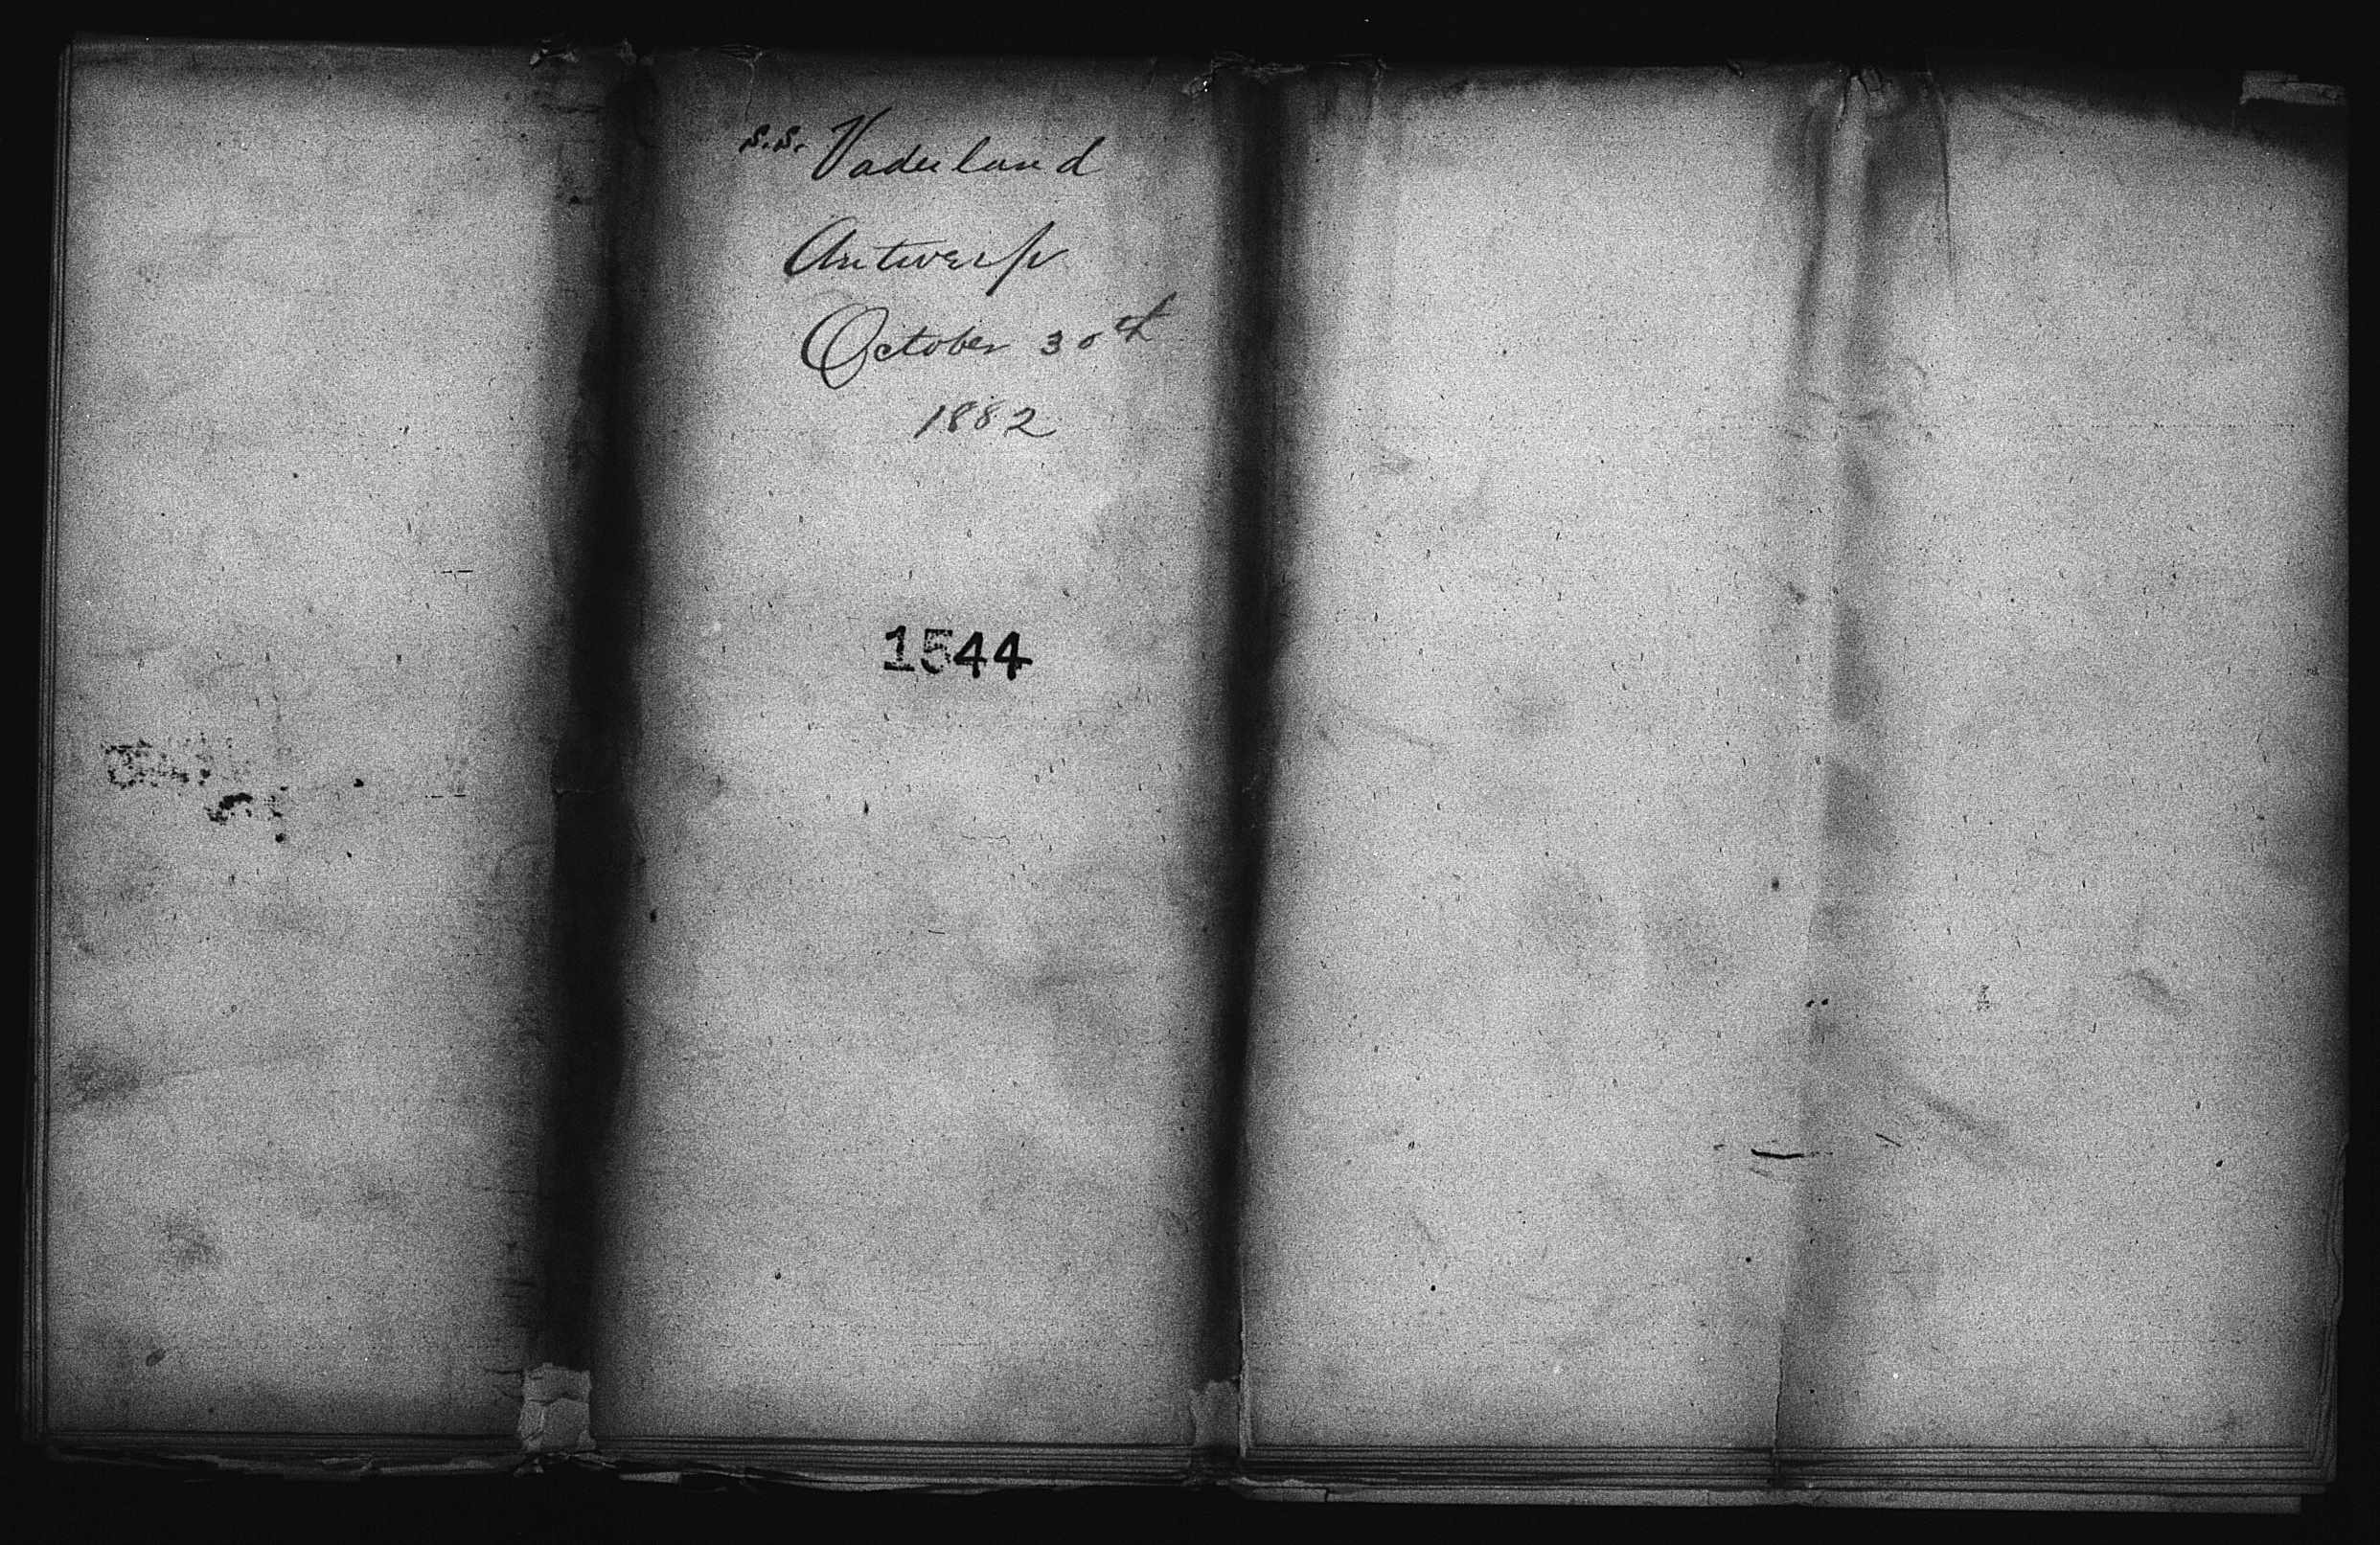 S.S. Vaderland
Antwerp
October 30th
1882
1544